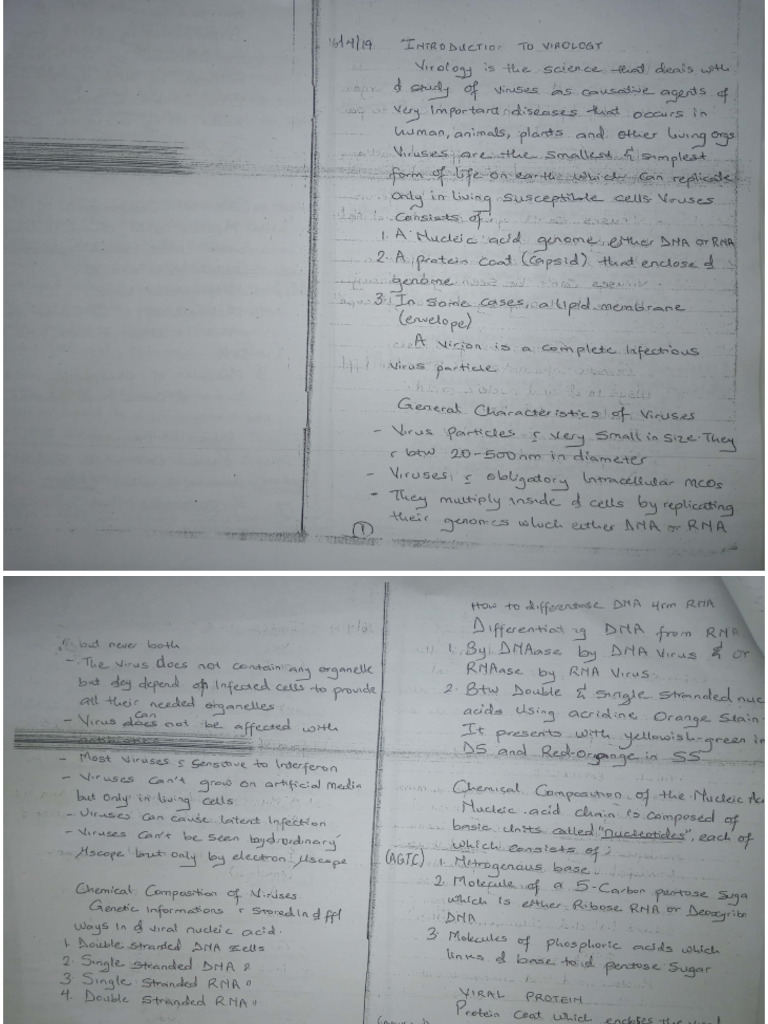 16/4/19 INTRODUCTION TO VIROLOGY
Virology is the science that deals with
d study of viruses as causative agents of
very important diseases that occurs in
human, animals, plants and other living orgs
Viruses are the smallest & simplest
form of life on earth which can replicate
only in living susceptible cells Viruses
consists of:
1. A Nucleic acid genome, either DNA or RNA
2. A protein coat (capsid) that enclose d
genome
3. In some cases, a lipid membrane
(envelope)
A virion is a complete infectious
virus particle
General Characteristics of Viruses
- Virus Particles r very small in size. They
r btw 20-500nm in diameter
- Viruses r obligatory Intracellular mcos
- They multiply inside d cells by replicating
their genomes which either DNA or RNA
1
but never both
- The virus does not contain any organelle
but dey depend on Infected cells to provide
all their needed organelles
- Virus can not be affected with
- Most viruses r sensitive to Interferon
- Viruses can't grow on artificial media
but only in living cells
- Viruses can cause latent Infection
- Viruses can't be seen by d ordinary
μscope but only by electron μscope
Chemical Composition of Viruses
Genetic Informations r stored in d fft
ways in d viral nucleic acid.
1. Double stranded DNA
2. Single stranded DNA "
3. Single stranded RNA "
4. Double stranded RNA "
How to differentiate DNA frm RNA
Differentiating DNA from RNA
1. By DNAase by DNA Virus & or
RNAase by RNA Virus.
2. Btw Double & single stranded nuc
acids using acridine Orange Stain
It presents with yellowish-green in
DS and Red-Orange in SS
Chemical Composition of the Nucleic Ac
Nucleic acid chain is composed of
basic units called "nucleotides", each of
which consists of:
(AGTC) 1. Nitrogenous base.
2. Molecule of a 5-Carbon pentose Suga
which is either Ribose RNA or Deoxyribo
DNA
3. Molecules of phosphoric acids which
links d base to d pentose Sugar
VIRAL PROTEIN
Protein Coat which encloses the